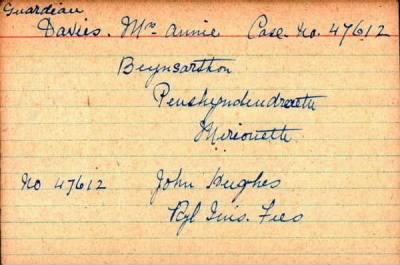 Guardian
Davies. Mrs Annie Case. No. 47612
Penrhyndendraeth
Mirioneth
No 47612 John Hughes
Ryl Inis. Fus